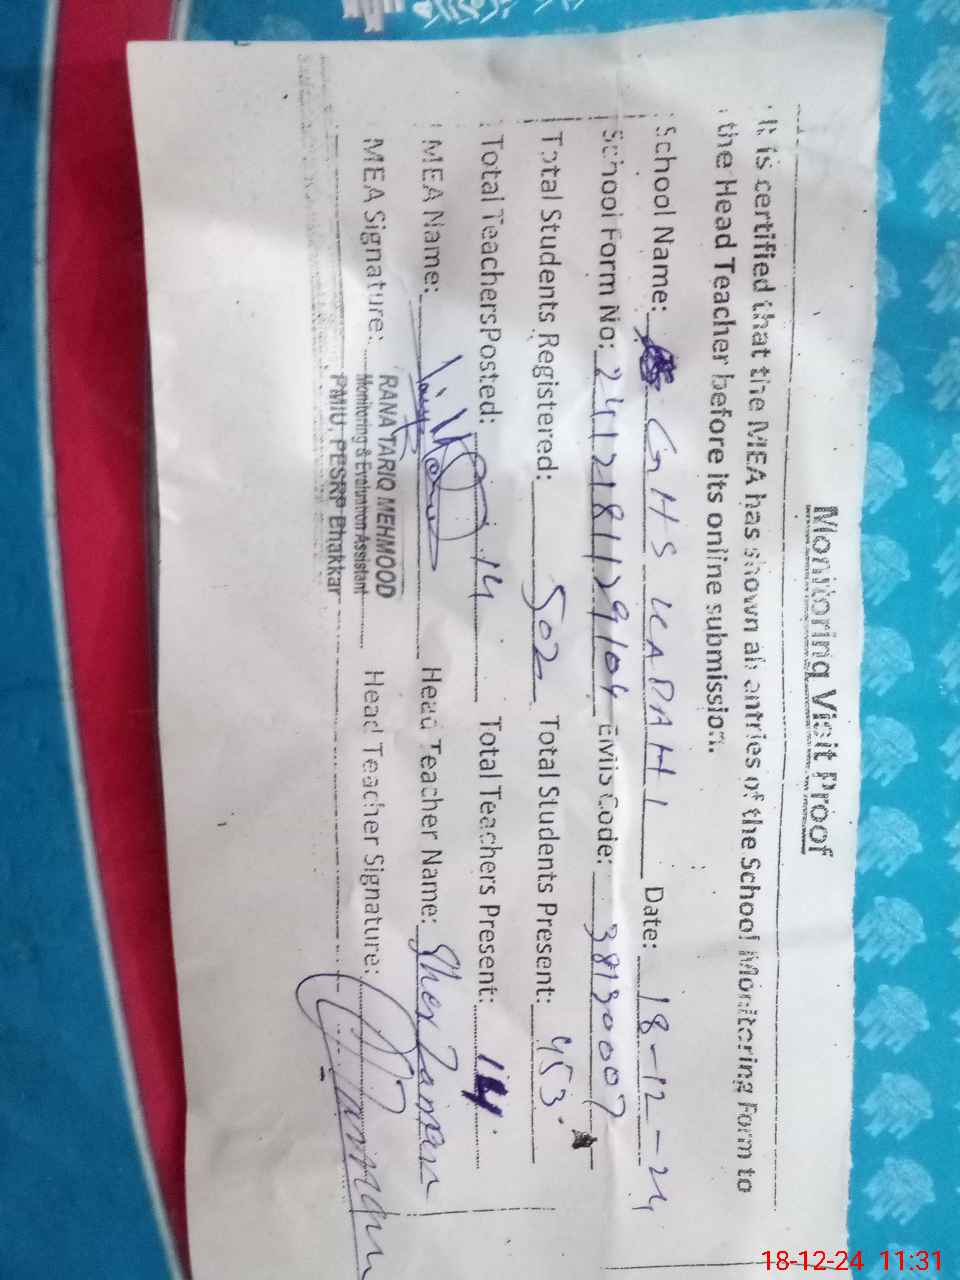 Monitoring Visit Proof
It is certified that the MEA has shown all entries of the School Monitoring Form to
the Head Teacher before its online submission.
School Name: GHS KAPAHI Date: 18-12-24
School Form No: 2412181129104 EMIS Code: 38130007
Total Students Registered: 502 Total Students Present: 453
Total TeachersPosted: 14 Total Teachers Present: 14
MEA Name: Head Teacher Name: Sher Zaman
MEA Signature: Head Teacher Signature:
RANA TARIQ MEHMOOD
Monitoring & Evaluation Assistant
PMIU, PESRP Bhakkar
18-12-24 11:31